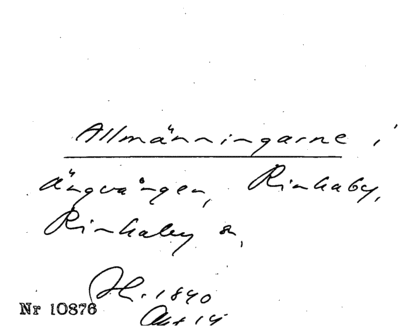 Allmänningarne i
Ängvången, Rinkaby,
Rinkaby sn,
H. 1840
Nr 10876
Akt 14